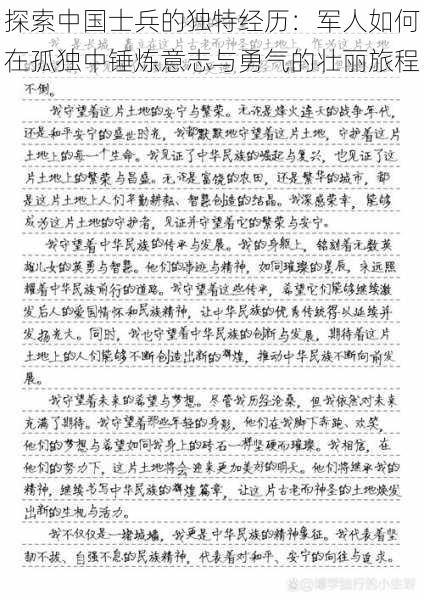 探索中国士兵的独特经历：军人如何
在孤独中锤炼意志与勇气的壮丽旅程
不倒。
我守望着这片土地的安宁与繁荣。无论是烽火连天的战争年代，
还是和平安宁的盛世时光，我都默默地守望着这片土地，守护着这片
土地上的每一个生命。我见证了中华民族的崛起与复兴，也见证了这
片土地上的繁荣与昌盛。无论是富饶的农田，还是繁华的城市，都
是这片土地上人们辛勤耕耘、智慧创造的结晶。我深感荣幸，能够
成为这片土地的守护者，见证并守望着它的繁荣与安宁。
我守望着中华民族的传承与发展。我的身躯上，铭刻着无数英
雄儿女的英勇与智慧。他们的事迹与精神，如同璀璨的星辰，永远照
耀着中华民族前行的道路。我守望着这些传承，希望它们能够继续激
发后人的爱国情怀和民族精神，让中华民族的优秀传统得以延续并
发扬光大。同时，我也守望着中华民族的创新与发展，期待着这片
土地上的人们能够不断创造出新的辉煌，推动中华民族不断向前发
展。
我守望着未来的希望与梦想。尽管我历经沧桑，但我依然对未来
充满了期待。我守望着那些年轻的身影，他们在我脚下奔跑、欢笑，
他们的梦想与希望如同我身上的砖石一样坚硬而璀璨。我相信，在
他们的努力下，这片土地将会迎来更加美好的明天。他们将继承我的
精神，继续书写中华民族的辉煌篇章，让这片古老而神圣的土地焕发
出新的生机与活力。
我不仅仅是一堵城墙，我更是中华民族的精神象征。我代表着坚
韧不拔、自强不息的民族精神，代表着对和平、安宁的向往与追求。